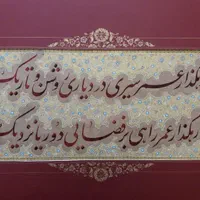 رهگذار عمر سیری در دیاری روشن و تاریک
رهگذار عمر راهی بر فضایی دور یا نزدیک